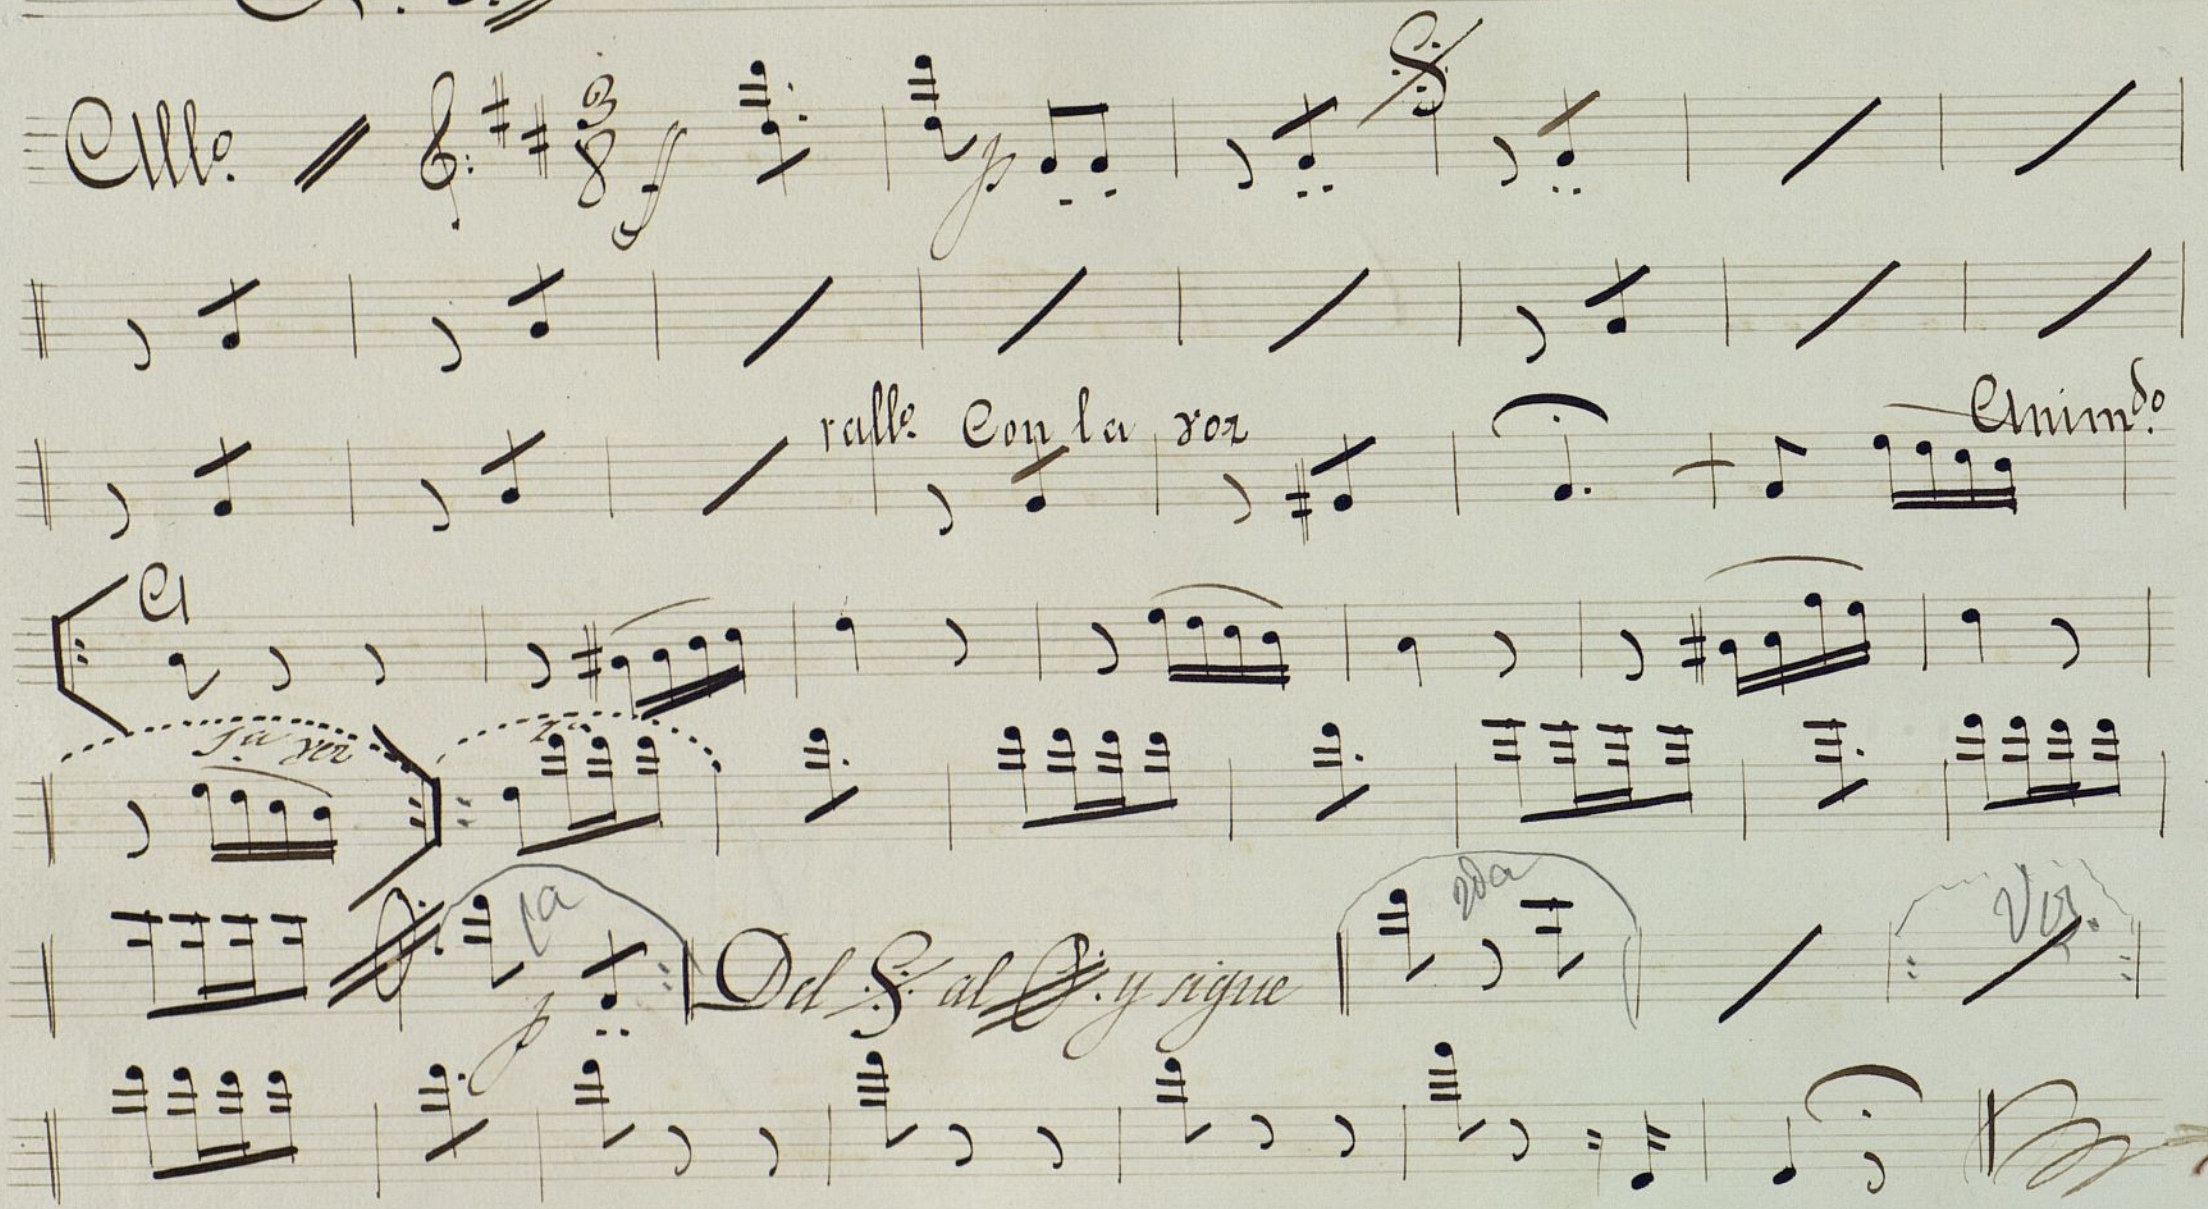 All.º 3/8 ff p
rall.º Con la voz Anim.do
A
1.a vez 2.a
1a p Del 𝄋 al 𝄌. y sigue 2da Vis.